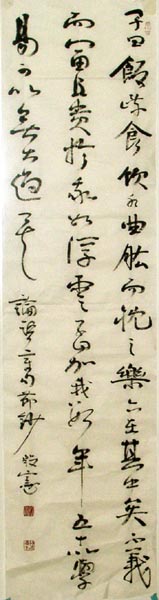 子曰飯疏食飲水曲肱而枕之樂亦在其中矣不義
而富且貴於我如浮雲子曰加我數年五十以學
易可以無大過矣 論語章句節鈔